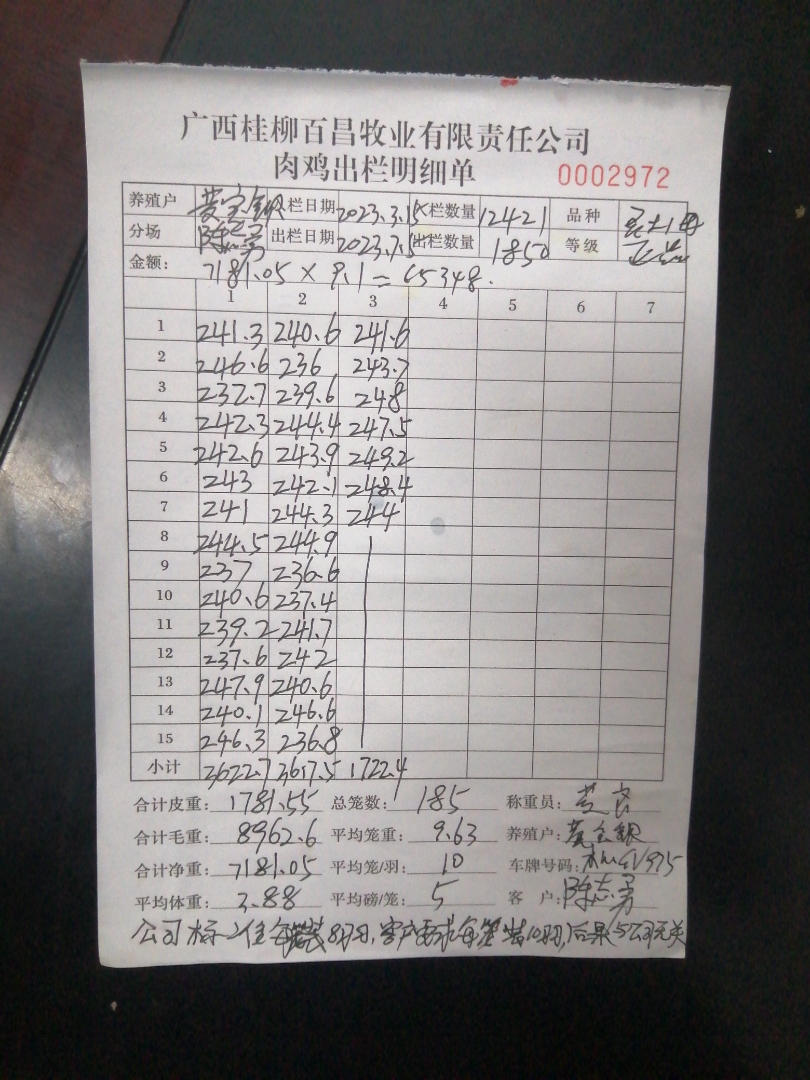 广西桂柳百昌牧业有限责任公司
肉鸡出栏明细单 0002972
养殖户 黄宝银 入栏日期 2023.3.15 入栏数量 12421 品种
分场 陈志勇 出栏日期 2023.7.5 出栏数量 1850 等级
金额: 7181.05 × 9.1 = 65348.
1 2 3 4 5 6 7
1 241.3 240.6 241.6
2 246.6 236 243.7
3 237.7 239.6 248
4 242.3 244.4 247.5
5 242.6 243.9 249.2
6 243 242.1 248.4
7 241 244.3 244
8 244.5 244.9
9 237 236.6
10 240.6 237.4
11 239.2 241.7
12 237.6 242
13 247.9 240.6
14 240.1 246.6
15 246.3 236.8
小计 3622.7 3617.5 1722.4
合计皮重: 1781.55 总笼数: 185 称重员:
合计毛重: 8962.6 平均笼重: 9.63 养殖户: 黄宝银
合计净重: 7181.05 平均笼/羽: 10 车牌号码:
平均体重: 3.88 平均磅/笼: 5 客 户: 陈志勇
公司标准每笼装8羽, 客户要求每笼装10羽, 后果与公司无关